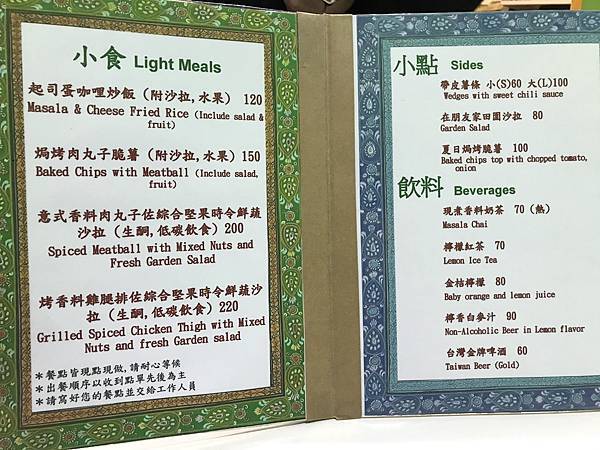 小食 Light Meals
起司蛋咖哩炒飯 (附沙拉,水果) 120
Masala & Cheese Fried Rice (Include salad &
fruit)
焗烤肉丸子脆薯 (附沙拉,水果) 150
Baked Chips with Meatball (Include salad,
fruit)
意式香料肉丸子佐綜合堅果時令鮮蔬
沙拉 (生酮,低碳飲食) 200
Spiced Meatball with Mixed Nuts and
Fresh Garden Salad
烤香料雞腿排佐綜合堅果時令鮮蔬沙
拉 (生酮,低碳飲食) 220
Grilled Spiced Chicken Thigh with Mixed
Nuts and fresh Garden salad
*餐點皆現點現做,請耐心等候
*出餐順序以收到點單先後為主
*請寫好您的餐點並交給工作人員
小點 Sides
帶皮薯條 小(S)60 大(L)100
Wedges with sweet chili sauce
在朋友家田園沙拉 80
Garden Salad
夏日焗烤脆薯 100
Baked chips top with chopped tomato,
onion
飲料 Beverages
現煮香料奶茶 70 (熱)
Masala Chai
檸檬紅茶 70
Lemon Ice Tea
金桔檸檬 80
Baby orange and lemon juice
檸香白麥汁 90
Non-Alcoholic Beer in Lemon flavor
台灣金牌啤酒 60
Taiwan Beer (Gold)